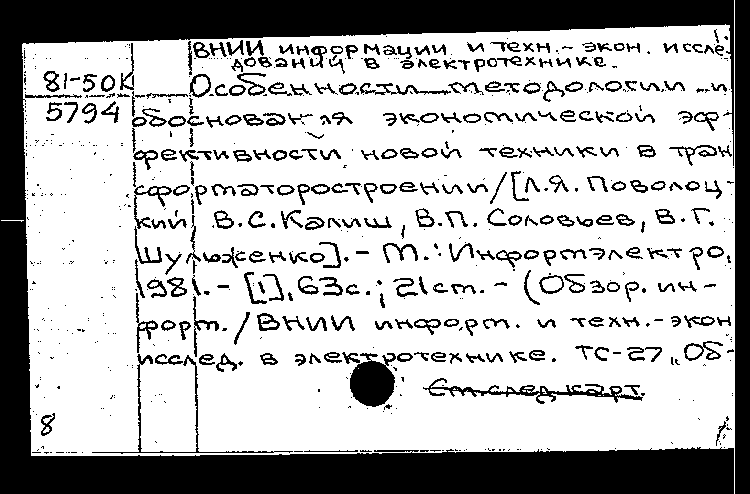 ВНИИ информации и техн.- экон. иссле-
дований в электротехнике.
81-50К Особенности методологии и
5794 обоснования экономической эф-
фективности новой техники в тран
сформаторостроении/[Л.Я. Поволоц-
кий, В.С.Калиш, В.П. Соловьев, В.Г.
Шульженко].- М.: Информэлектро,
1981.- [1], 63с.; 21см. - (Обзор. ин-
форм./ВНИИ информ. и техн.-экон
исслед. в электротехнике. ТС-27 „Об-
См.след.карт.
8